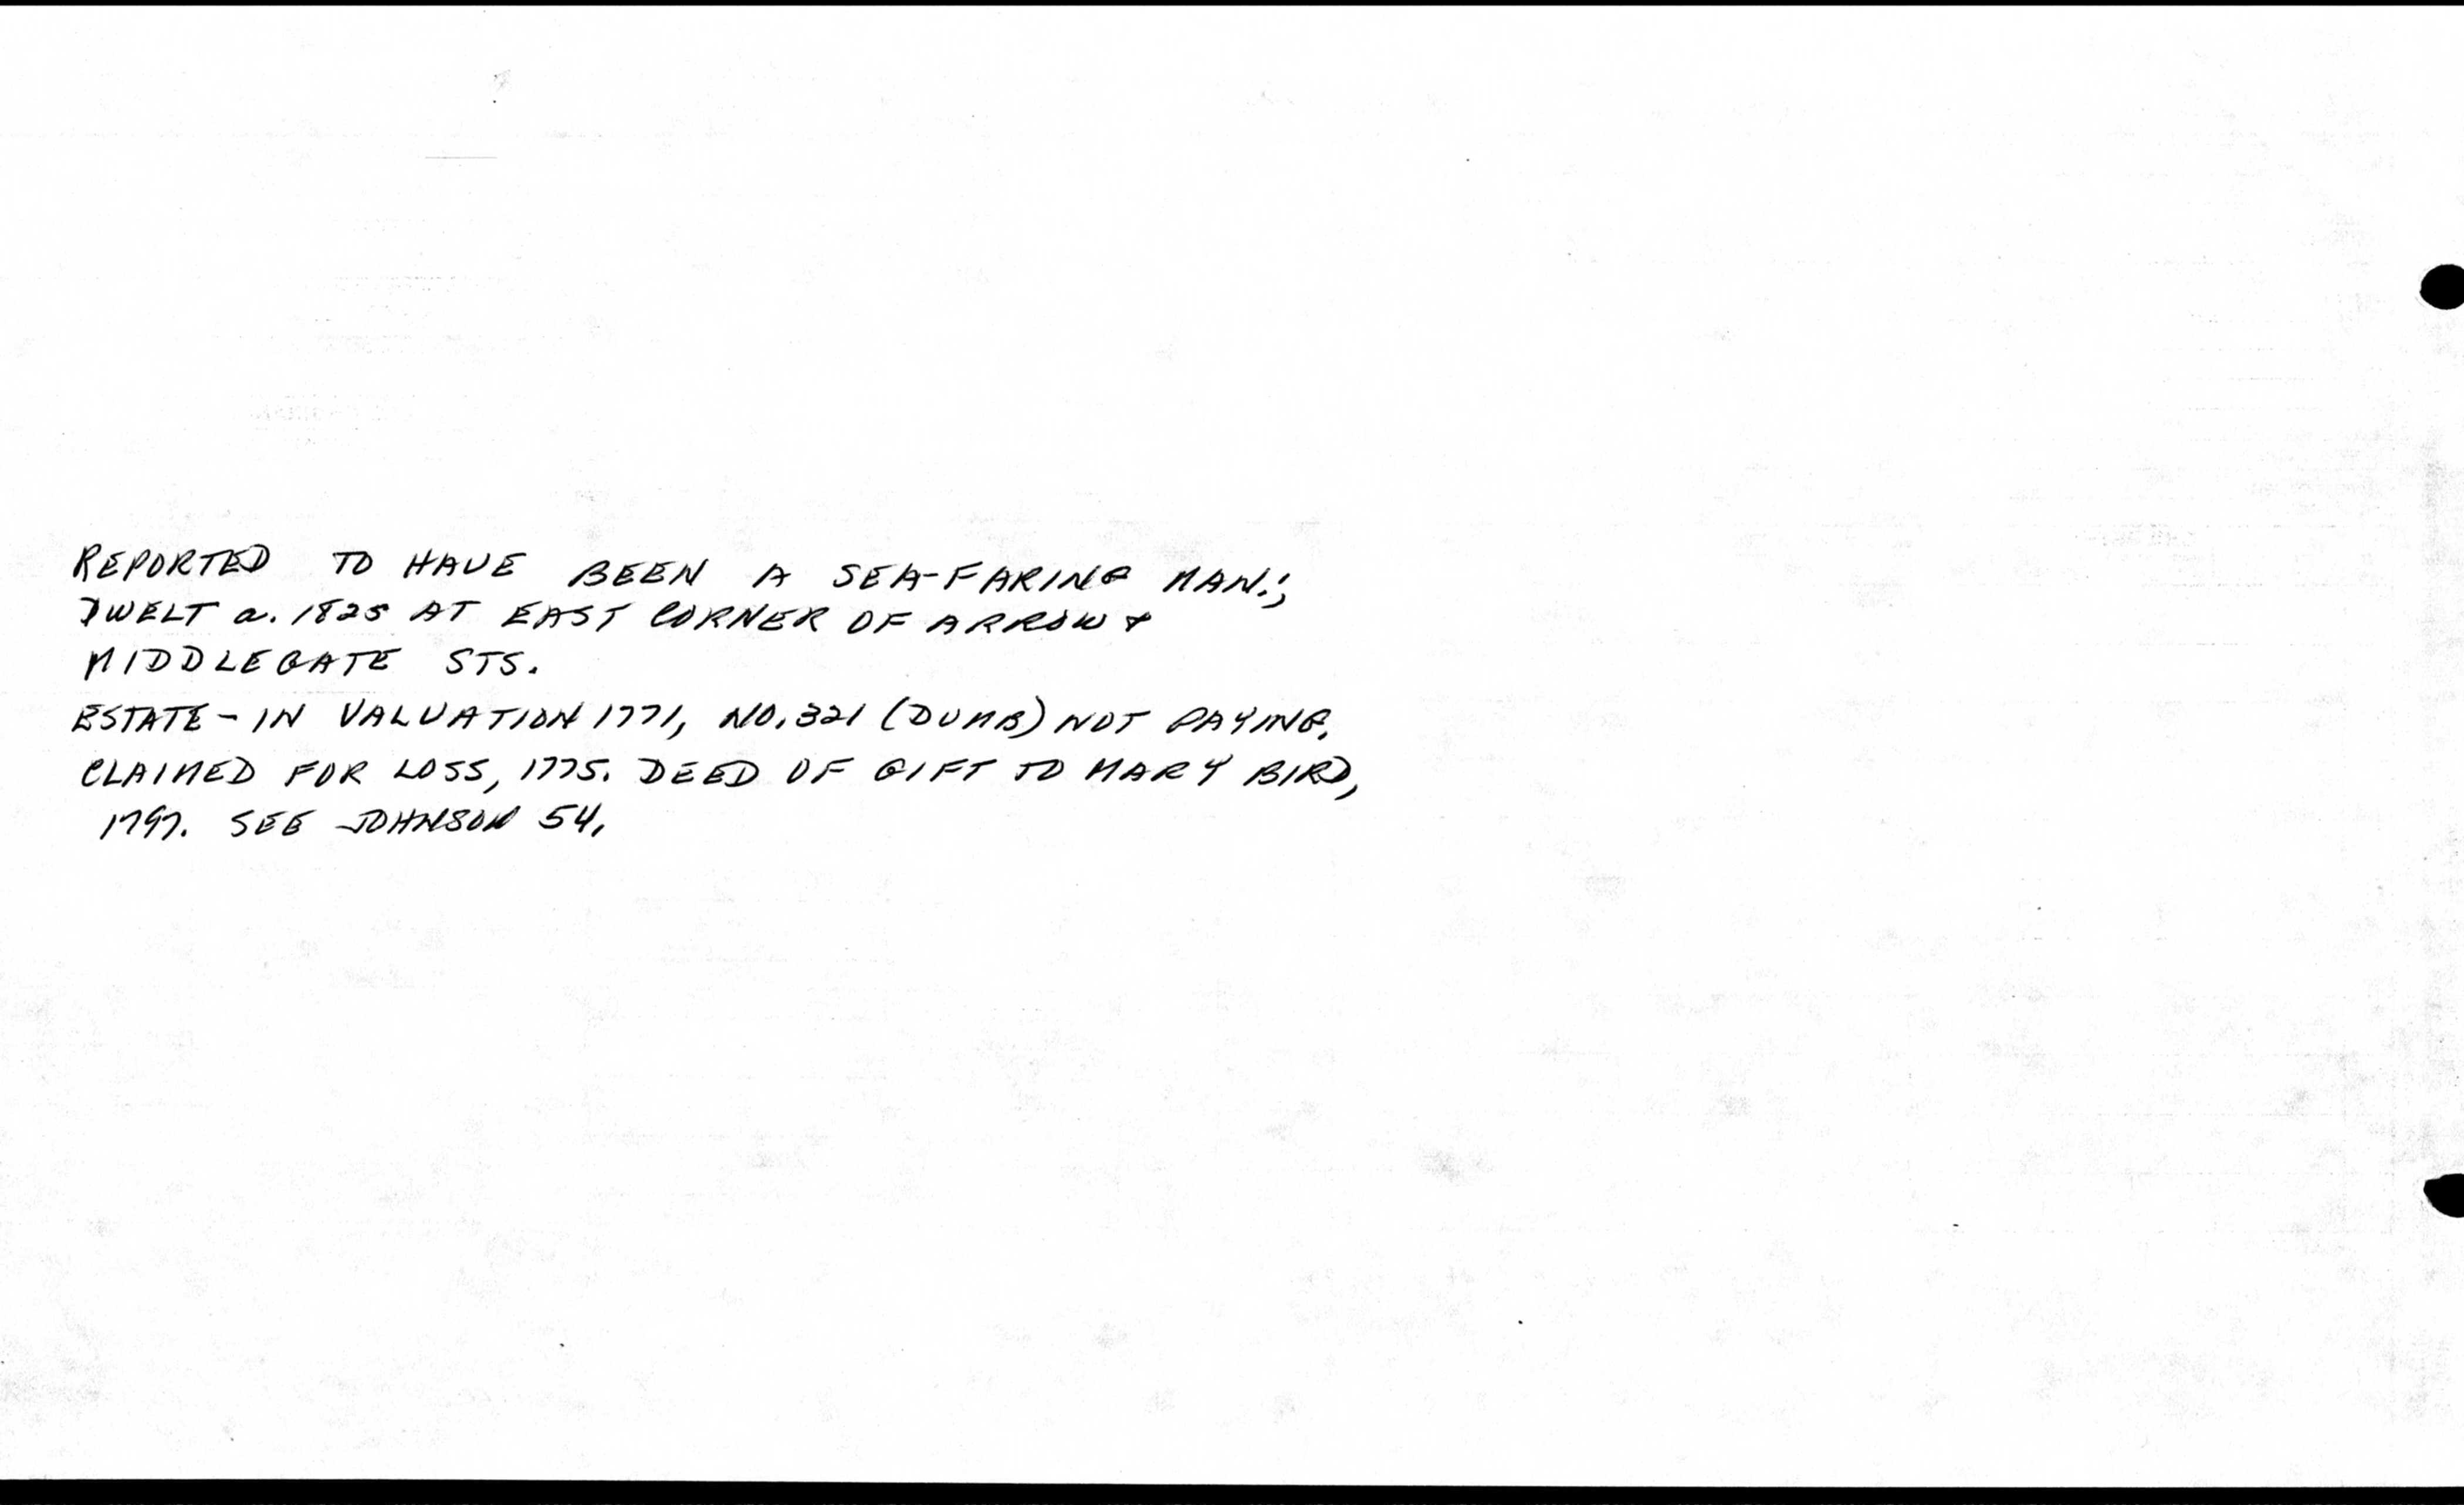 REPORTED TO HAVE BEEN A SEA-FARING MAN.;
DWELT a. 1825 AT EAST CORNER OF ARROW &
MIDDLEGATE STS.
ESTATE - IN VALUATION 1771, NO. 321 (DUMB) NOT PAYING.
CLAIMED FOR LOSS, 1775. DEED OF GIFT TO MARY BIRD,
1797. SEE JOHNSON 54.